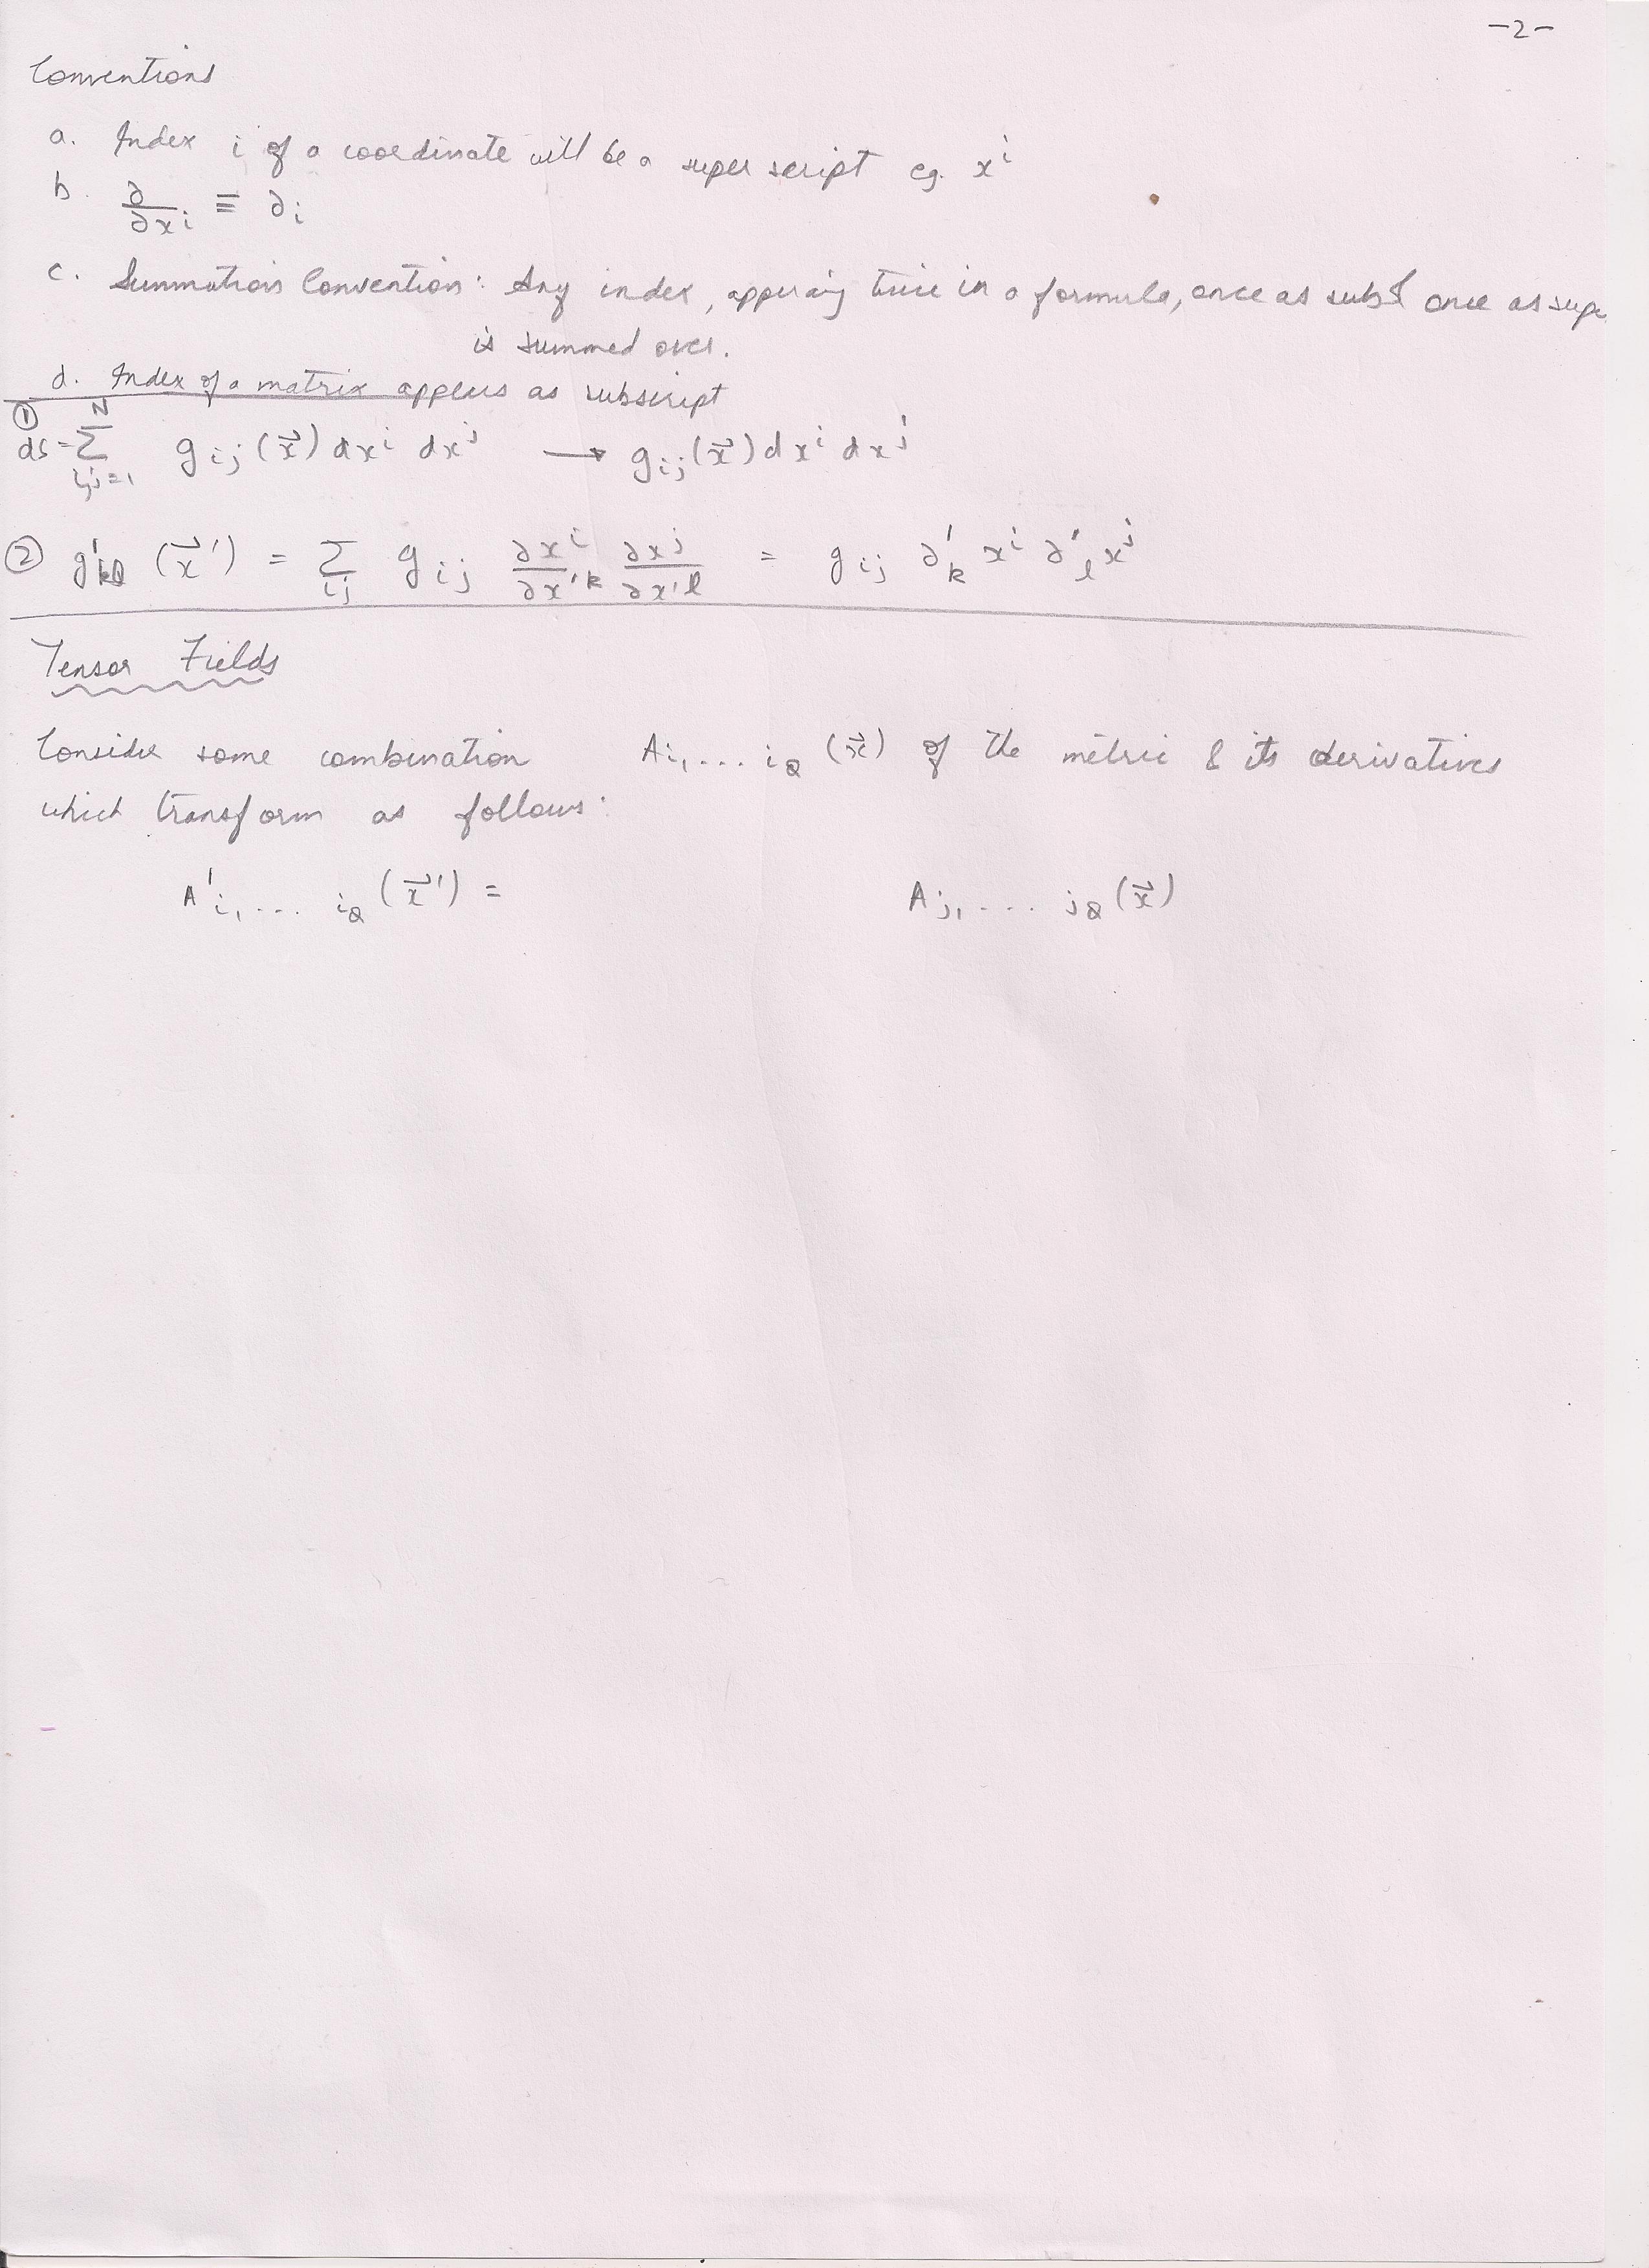 -2-
Conventions
a. Index i of a coordinate will be a super script eg. xⁱ
b. ∂/∂xⁱ ≡ ∂ᵢ
c. Summation Convention: Any index, appering twice in a formula, once as sub & once as supe
is summed over.
d. Index of a matrix appears as subscript
① ds = Σ_{i,j=1}^{N} g_{ij}(x⃗) dxⁱ dxʲ → g_{ij}(x⃗) dxⁱ dxʲ
② g'_{kl}(x⃗') = Σ_{ij} g_{ij} ∂xⁱ/∂x'ᵏ ∂xʲ/∂x'ˡ = g_{ij} ∂'_k xⁱ ∂'_l xʲ
Tensor Fields
Consider some combination A_{i₁....i_Q}(x⃗) of the metric & its derivatives
which transform as follows:
A'_{i₁....i_Q}(x⃗') = A_{j₁....j_Q}(x⃗)